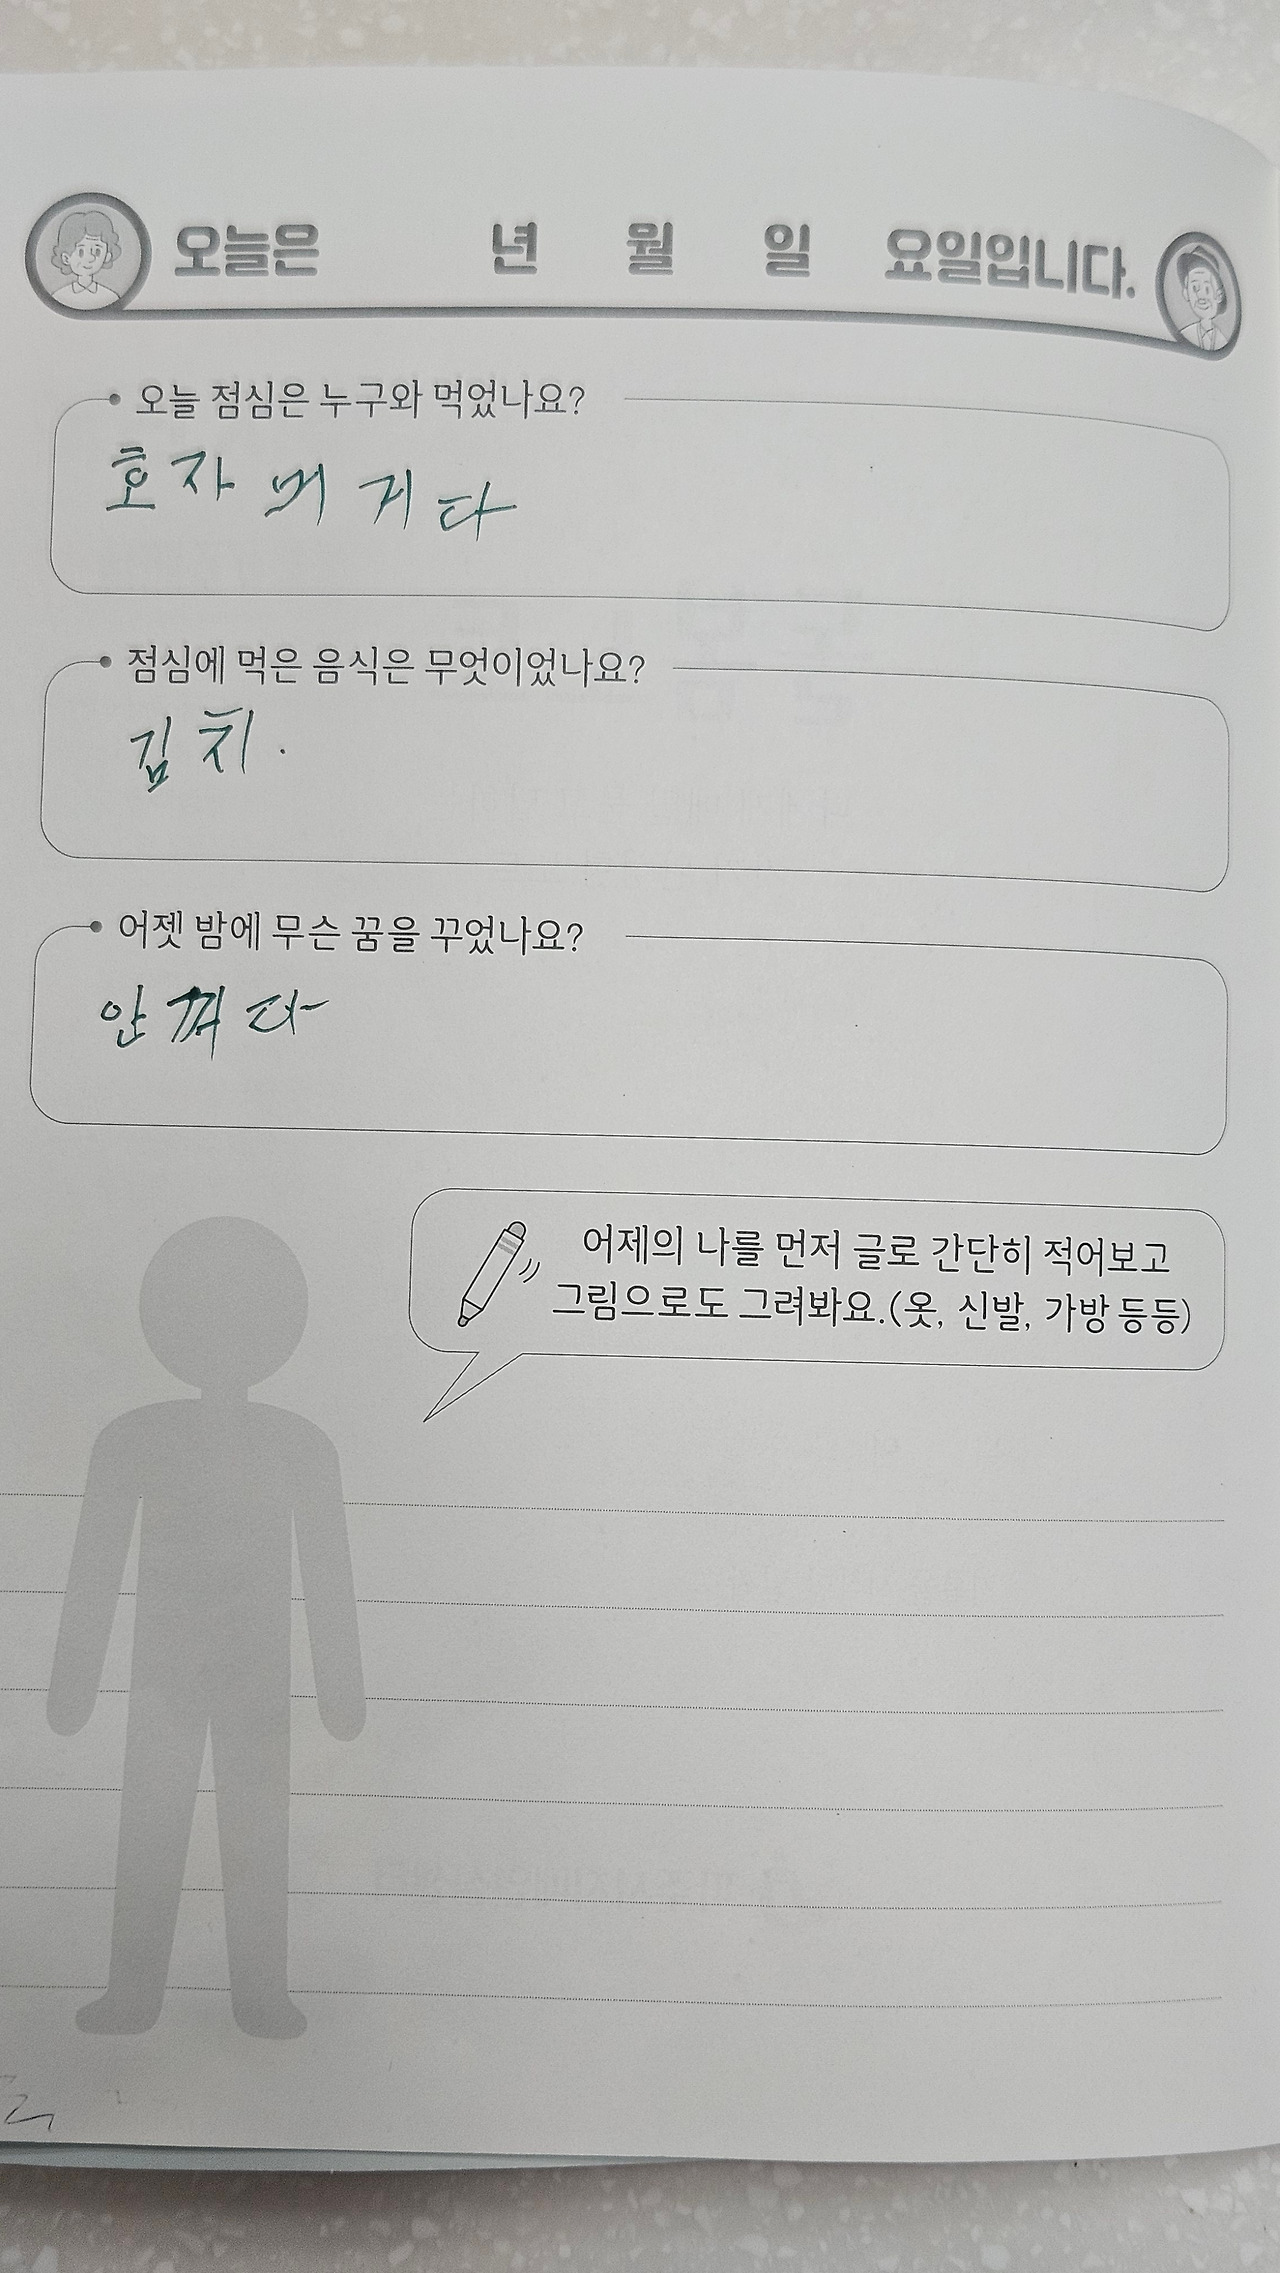 오늘은 년 월 일 요일입니다.
오늘 점심은 누구와 먹었나요?
호자 머거다
점심에 먹은 음식은 무엇이었나요?
김치.
어젯 밤에 무슨 꿈을 꾸었나요?
안 꺼다
어제의 나를 먼저 글로 간단히 적어보고
그림으로도 그려봐요.(옷, 신발, 가방 등등)